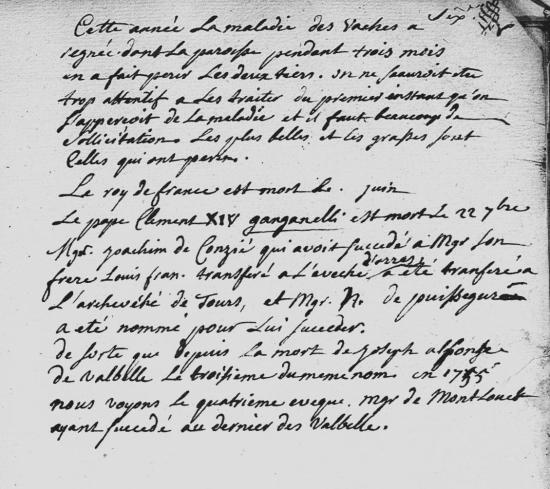 Cette année La maladie des Vaches a
regnée dont La paroisse pendent trois mois
en a fait perir Les deux tiers. on ne sçauroit etre
trop attentif a Les traiter du premier instant qu'on
s'apperçoit de La maladie et il faut beaucoup de
sollicitation. Les plus belles et les grasses sont
Celles qui ont peri.
Le roy de france est mort le . juin
Le pape Clement XIV ganganelli est mort Le 22 7bre
Mgr. joachim de Conzié qui avoit succedé a Mgr son
frere Louis fran. transferé a L'eveché d'arras a été transferé a
L'archevêché de Tours, et Mgr. N. de puissegur
a eté nommé pour Lui succeder.
de sorte que depuis La mort de joseph alfonse
de valbelle Le troisieme du meme nom en 1755
nous voyons Le quatrième eveque. mgr de MontLouet
ayant succedé au dernier des Valbelle.